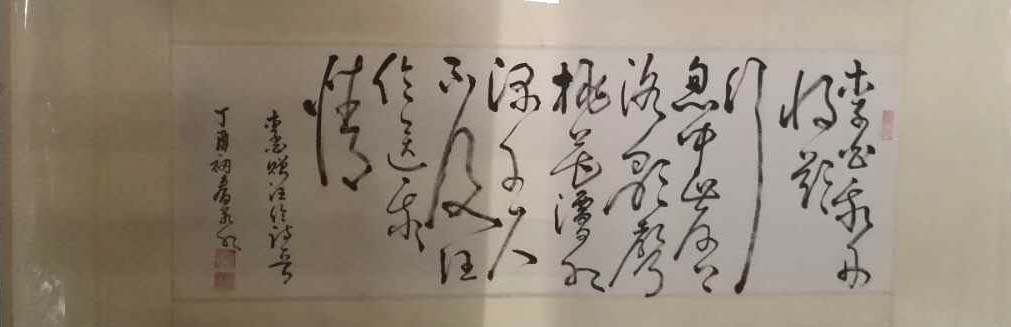 李白乘舟
将欲
行
忽闻岸上
踏歌聲
桃花潭水
深千尺
不及汪
伦送我
情
李白赠汪伦诗
丁酉初春